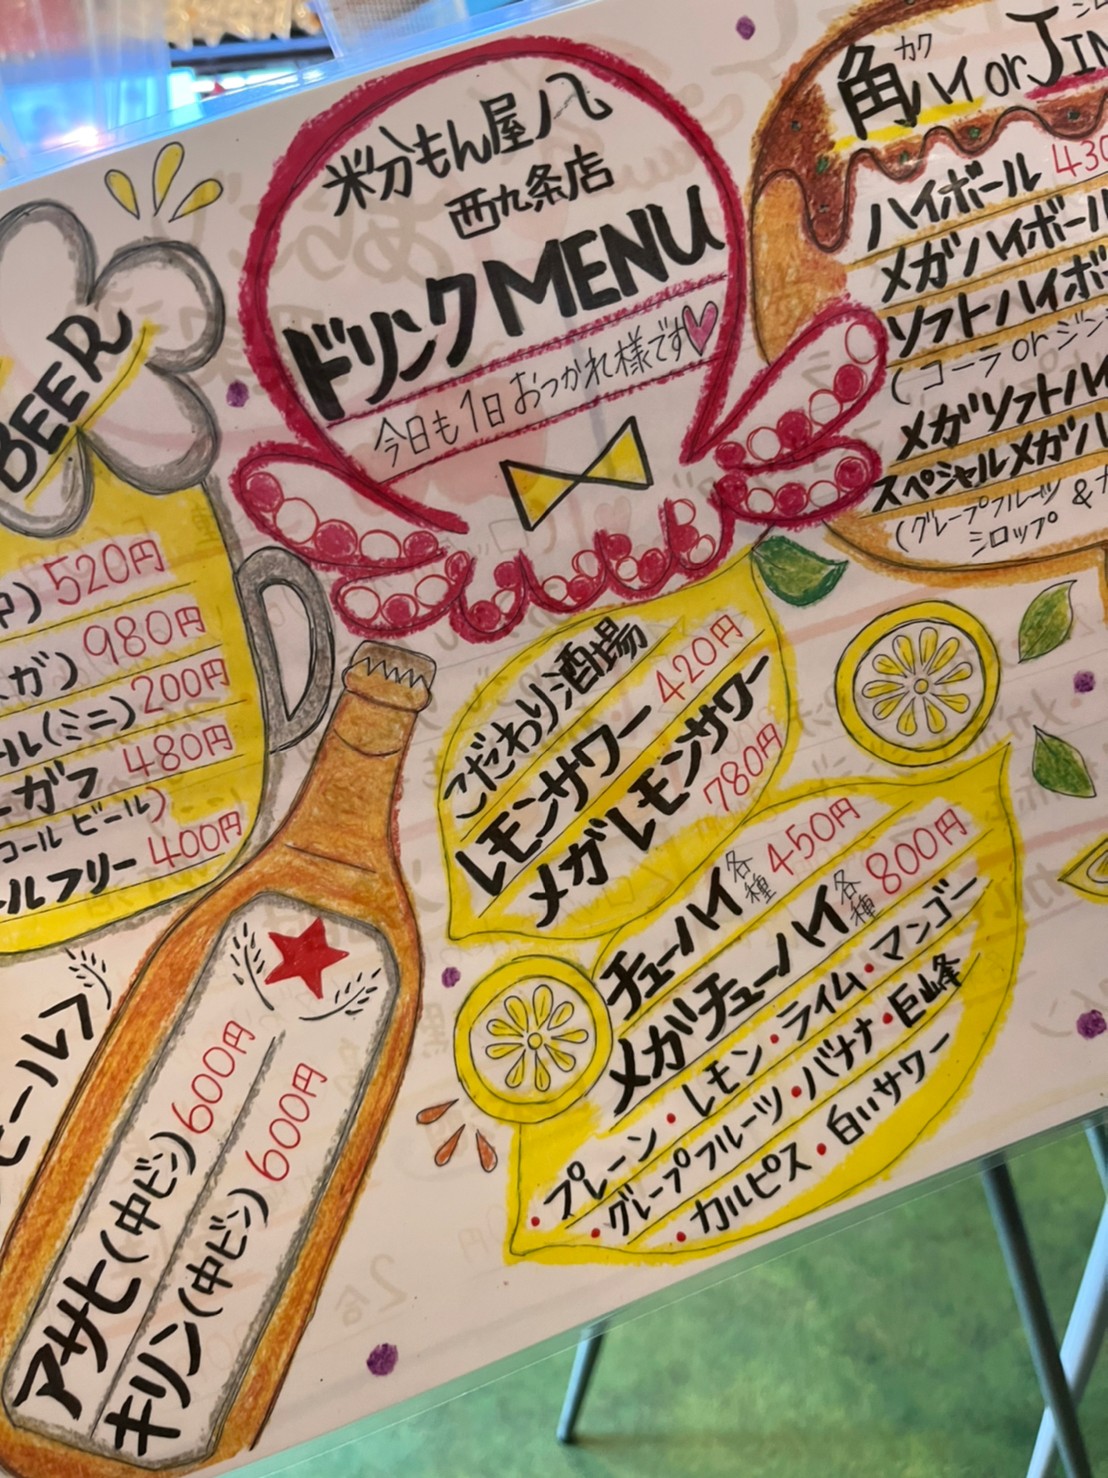 粉もん屋八
西九条店
ドリンクMENU
今日も1日おつかれ様です
BEER
520円
980円
(ミニ) 200円
480円
ビール)
ルフリー 400円
アサヒ(中ビン) 600円
キリン(中ビン) 600円
角ハイ or JIN
カク
ハイボール 430
メガハイボール
ソフトハイボ
(コーラ or ジン
メガソフトハイ
スペシャルメガハ
(グレープフルーツ &
シロップ
こだわり酒場
レモンサワー 420円
メガレモンサワー
780円
チューハイ各種 450円
メガチューハイ各種 800円
・プレーン・レモン・ライム・マンゴー
・グレープフルーツ・バナナ・巨峰
・カルピス・白いサワー